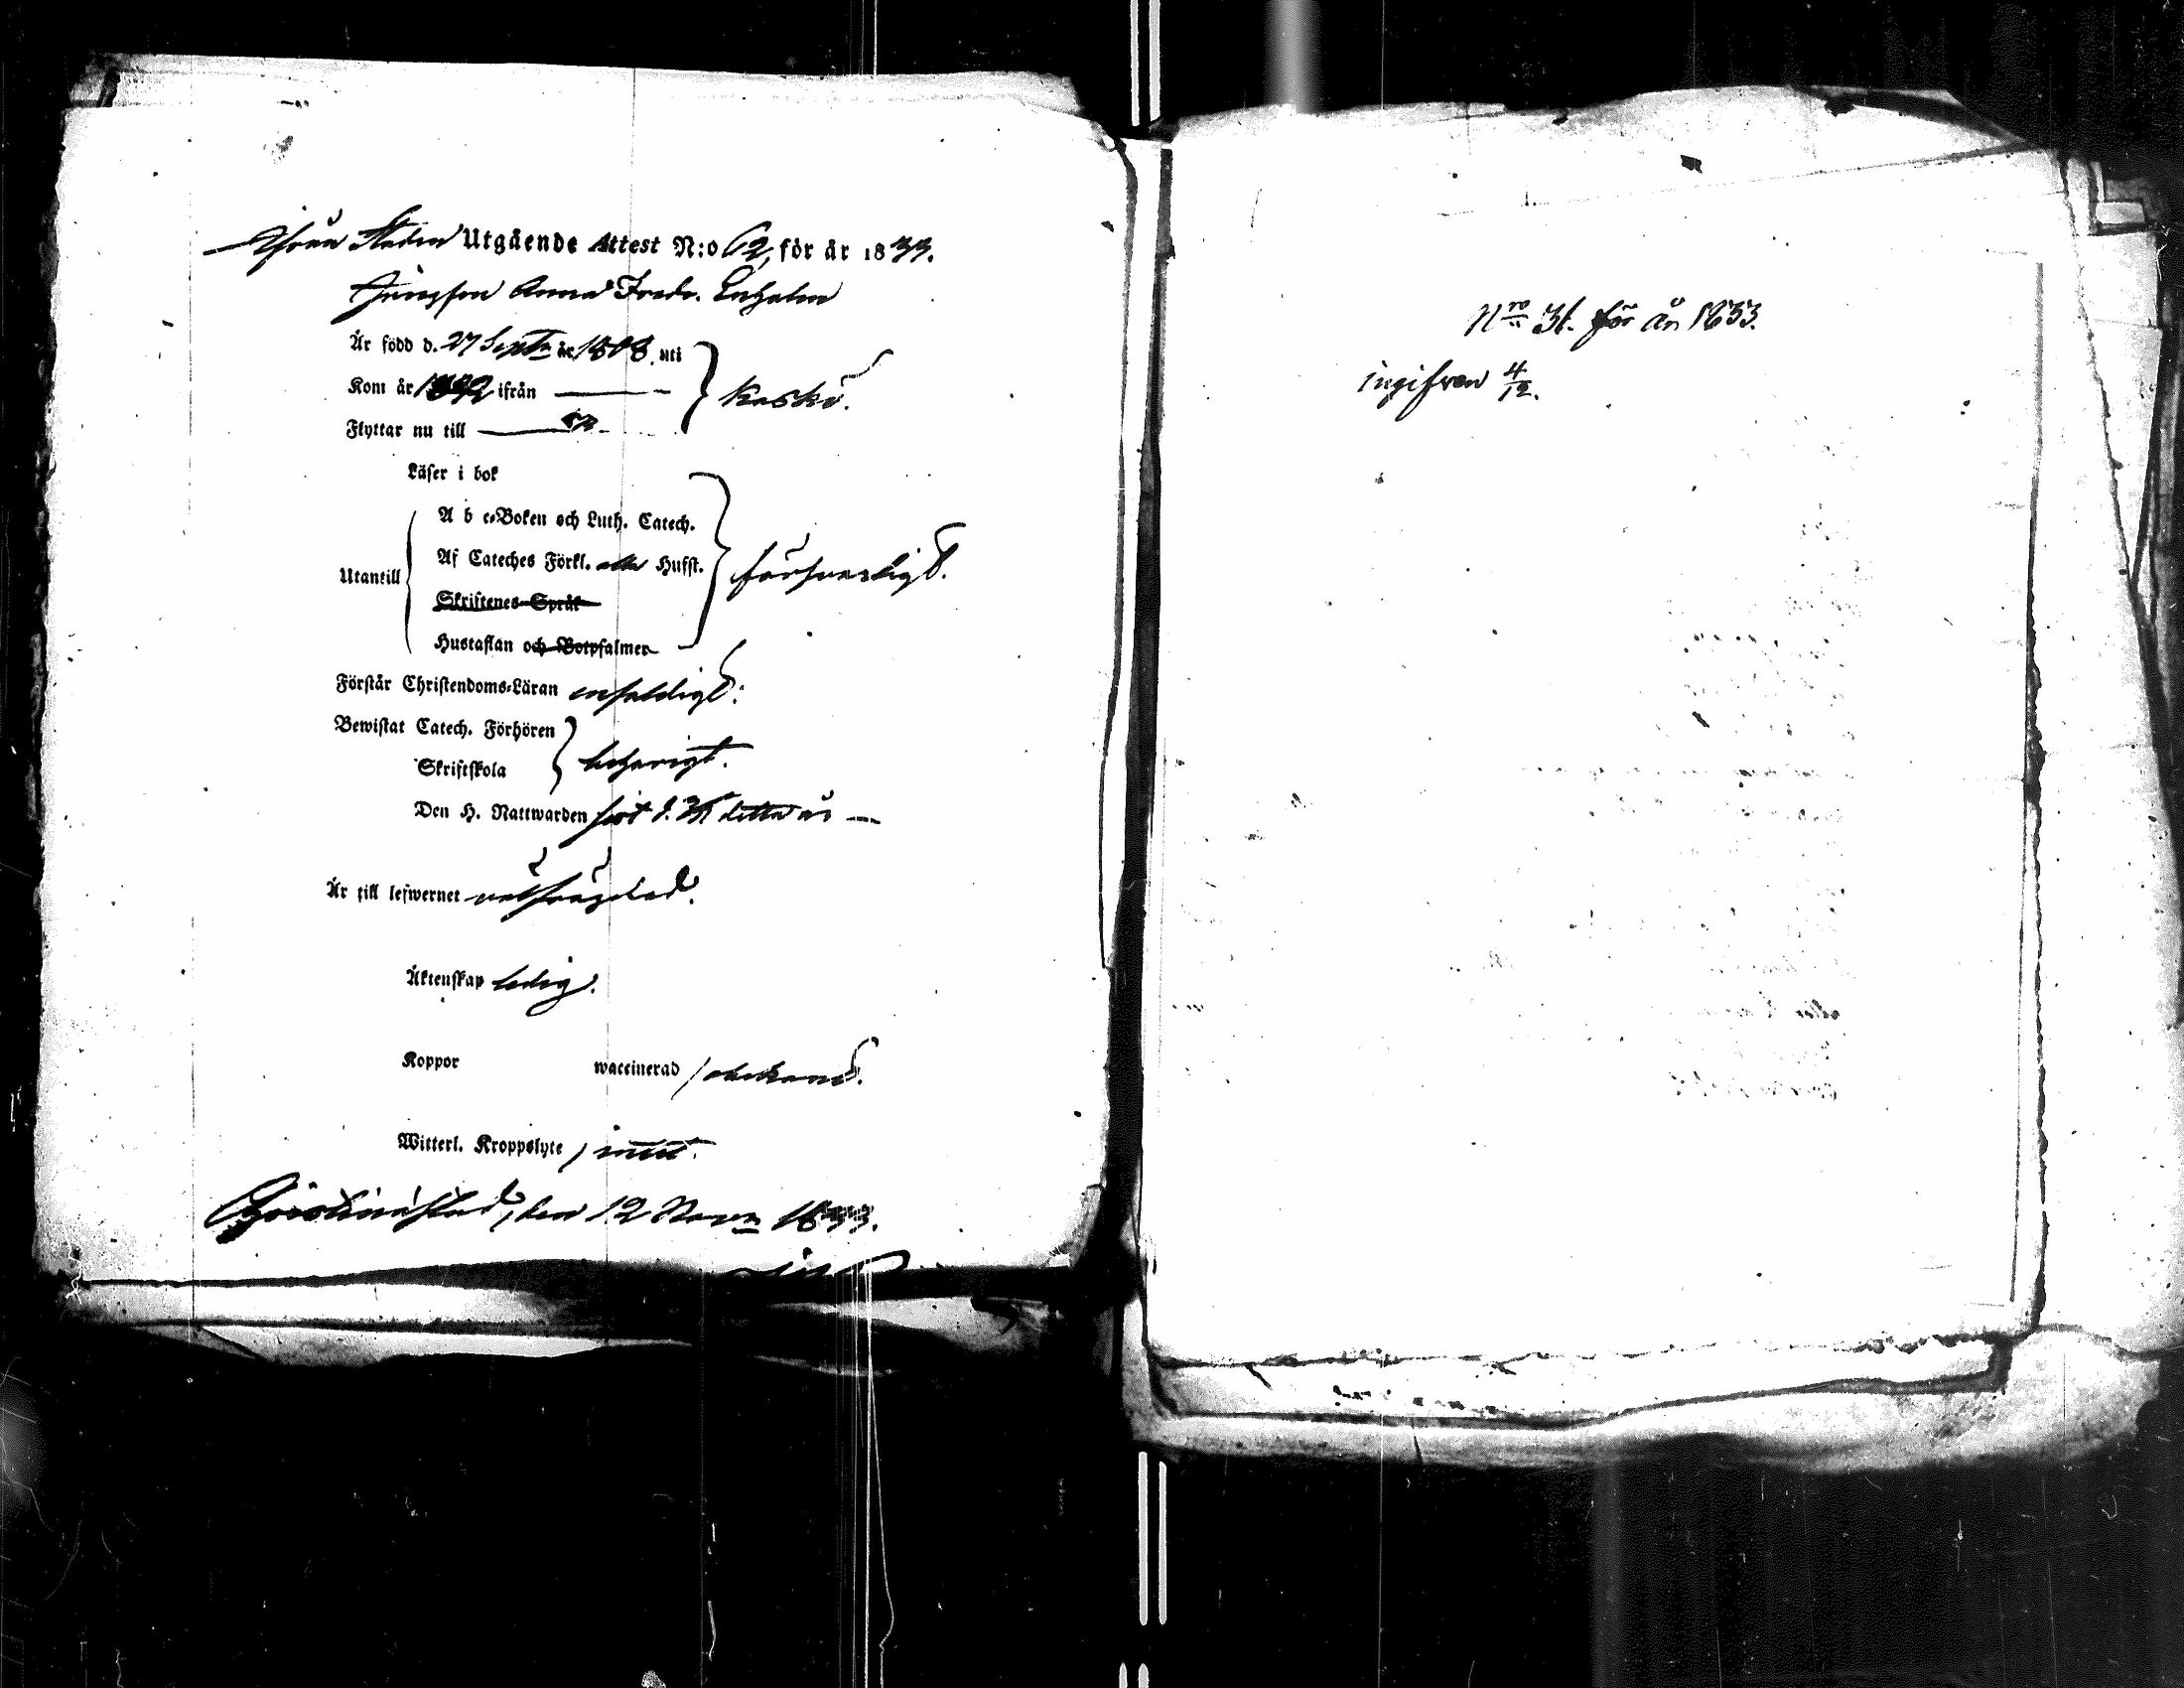 Från Staden Utgående Attest N:o 62, för år 1833.
Jungfrun Anna Fredr. Enholm
Är född d. 27 Septr år 1808. uti
Kom år 1832 ifrån
Kaskö.
Flyttar nu till
Läser i bok
A b c-Boken och Luth. Catech.
Af Cateches Förkl. alla Hufst.
Utantill
försvarligt.
Skriftenes Språk
Hustaflan och Botpsalmer
Förstår Christendoms-Läran enfaldigt.
Bewistat Catech. Förhören
behörigt.
Skriftskola
Den H. Nattwarden sist d. detta år
Är till lefwernet välfrägdad.
Äktenskap ledig.
Koppor waccinerad / obekand.
Witterl. Kroppslyte / intet.
Christinæstad, den 12 Novr 1833.
Nro 31. för år 1833.
ingifven 4/12.